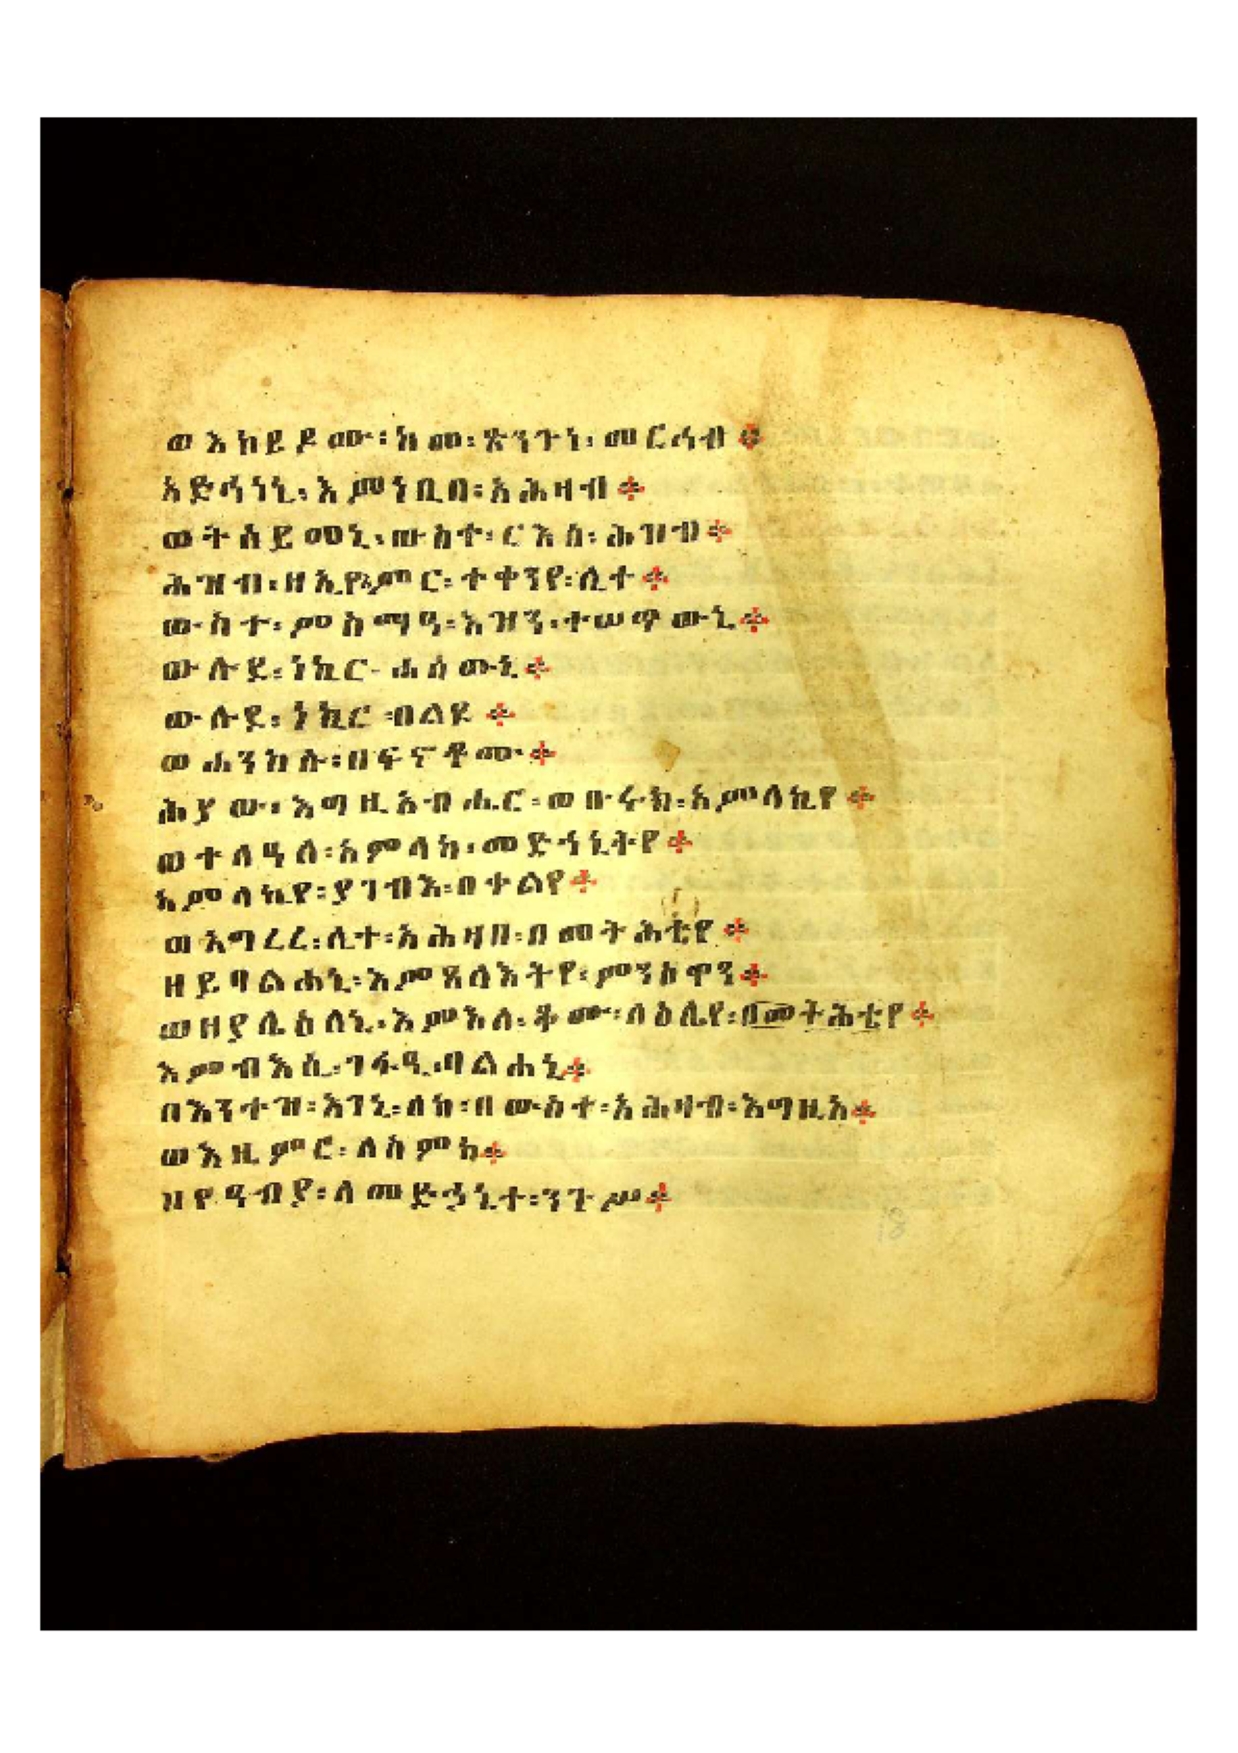 ወእከይዶሙ፡ከመ፡ጽንጉነ፡መርሓብ፨
አድኅነኒ፡እምነቢበ፡አሕዛብ፨
ወትሰይመኒ፡ውስተ፡ርእሰ፡ሕዝብ፨
ሕዝብ፡ዘኢየአምር፡ተቀንየ፡ሊተ፨
ውስተ፡ምስማዓ፡እዝን፡ተሠጥውኒ፨
ውሉደ፡ነኪር፡ሐሰውኒ፨
ውሉደ፡ነኪር፡በልዩ፨
ወሐንከሱ፡በፍኖቶሙ፨
ሕያው፡እግዚአብሔር፡ወቡሩክ፡አምላኪየ፨
ወተለዓለ፡አምላከ፡መድኅኒትየ፨
አምላኪየ፡ያገብእ፡በቀልየ፨
ወአግረረ፡ሊተ፡አሕዛበ፡በመትሕቴየ፨
ዘይባልሐኒ፡እምጸላእትየ፡ምንስዋን፨
ወዘያሌዕለኒ፡እምእለ፡ቆሙ፡ላዕሌየ፡በመትሕቴየ፨
እምብእሲ፡ገፋዒ፡ባልሐኒ፨
በእንተዝ፡እገኒ፡ለከ፡በውስተ፡አሕዛብ፡እግዚአ፨
ወእዜምር፡ለስምከ፨
ዘየዓብያ፡ለመድኃኒተ፡ንጉሥ፨